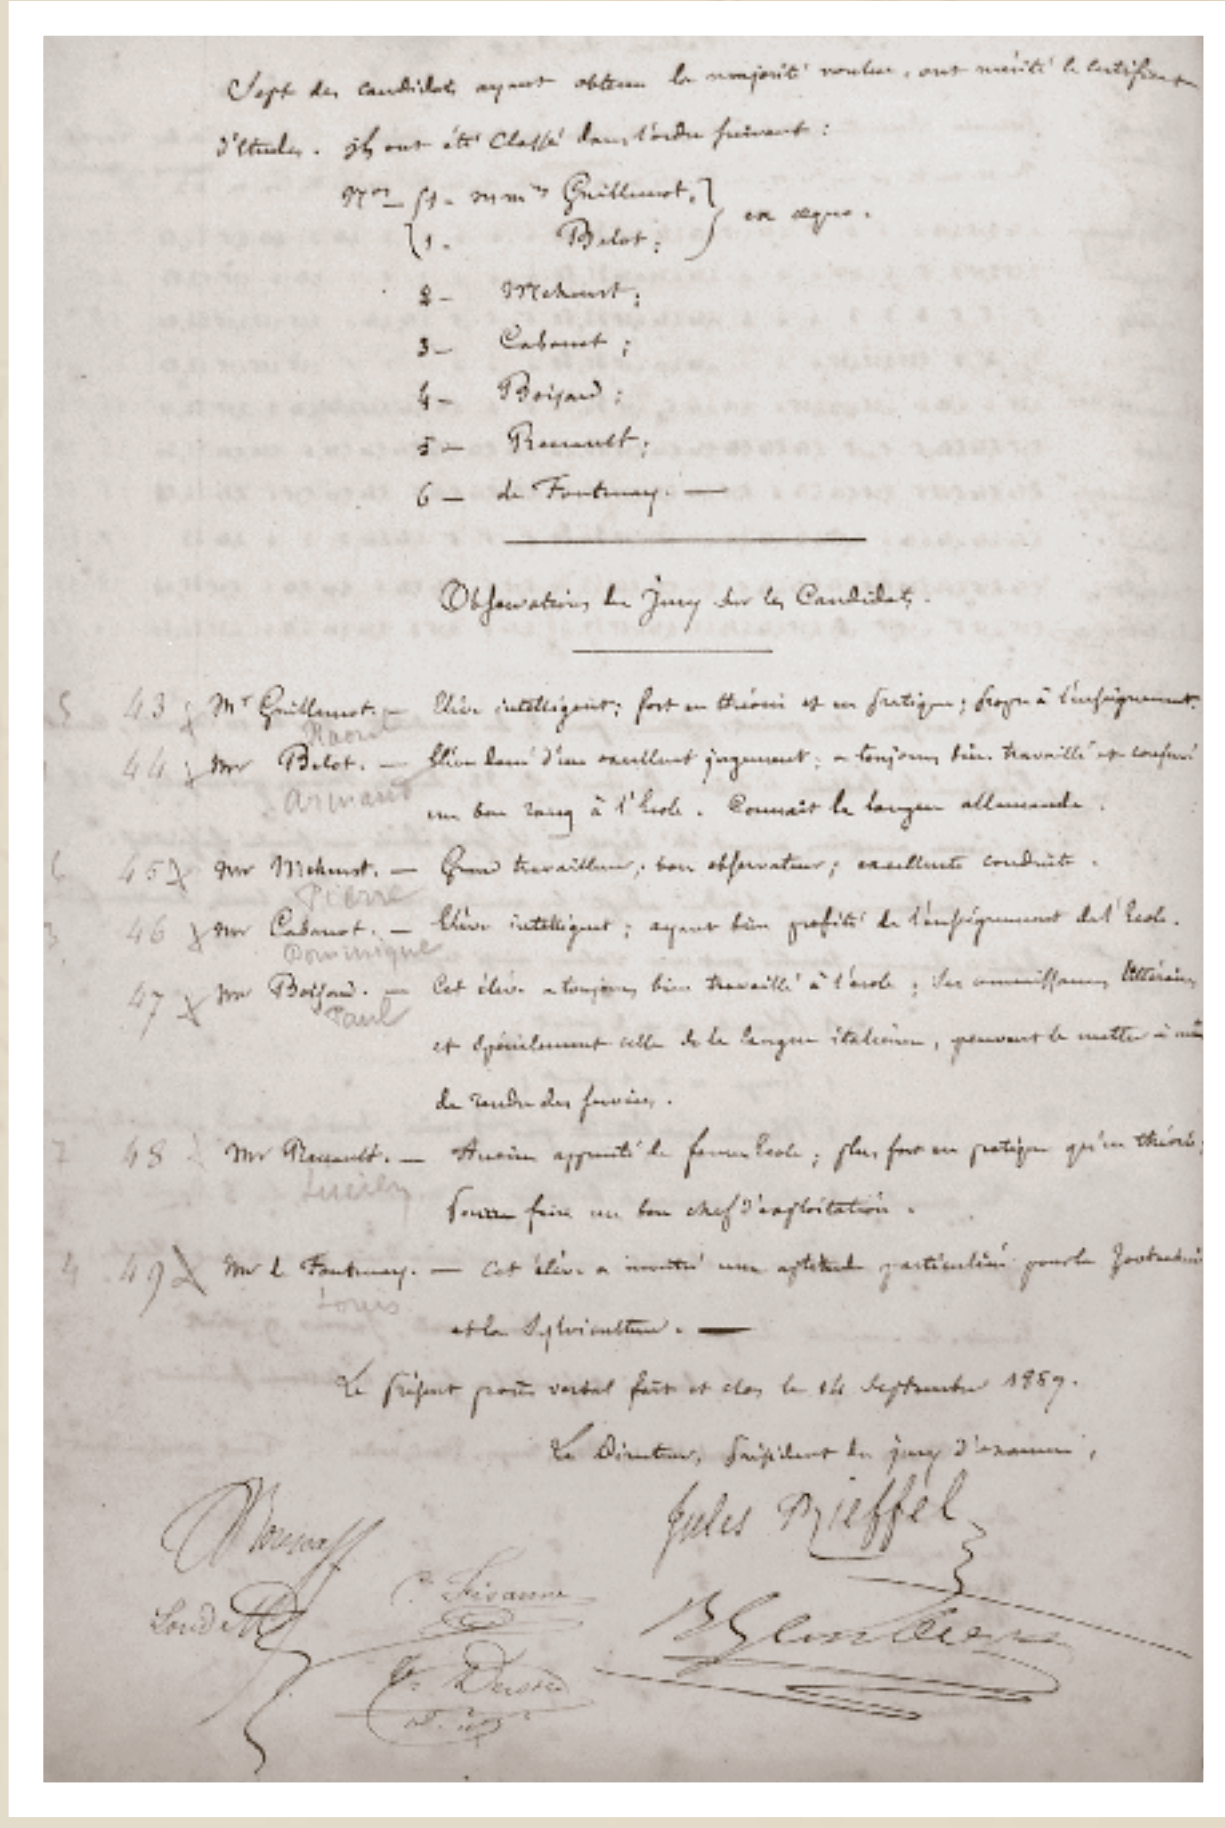 Sept des candidats ayant obtenu la majorité voulue, ont mérité le certificat
d'études. Ils ont été classé dans l'ordre suivant :
Nos 1 - MMrs Guillemot,
1 - Belot ; ex æquo.
2 - Mehoust ;
3 - Cabanot ;
4 - Boijard ;
5 - Renault ;
6 - de Fontenay. —
Observations du Jury sur les Candidats.
5 43 Mr Guillemot. — Elève intelligent ; fort en théorie et en pratique ; propre à l'enseignement.
Raoul
44 Mr Belot. — Elève doué d'un excellent jugement ; a toujours bien travaillé et conservé
Armand
un bon rang à l'école. Connait la langue allemande.
45 Mr Mehoust. — Grand travailleur ; bon observateur ; excellente conduite.
Pierre
3 46 Mr Cabanot. — Elève intelligent ; ayant bien profité de l'enseignement de l'école.
Dominique
47 Mr Boijard. — Cet élève a toujours bien travaillé à l'école ; ses connaissances littéraires
Paul
et spécialement celle de la langue italienne, peuvent le mettre à même
de rendre des services.
7 48 Mr Renault. — Ancien apprenti de ferme école ; plus fort en pratique qu'en théorie ;
Lucien
Pourra faire un bon chef d'exploitation.
4 49 Mr de Fontenay. — Cet élève a montré une aptitude particulière pour la Zootechnie
Louis
et la Sylviculture. —
Le présent procès verbal fait et clos le 14 Septembre 1859.
Le Directeur, Président du jury d'examen,
Jules Rieffel
Londet